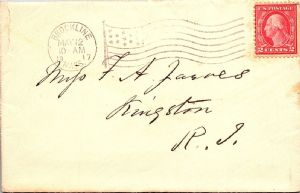 BROOKLINE
MAY 12
10 AM
17
MASS.
U.S. POSTAGE
2 CENTS 2
Miss F. A. James
Kingston
R. I.